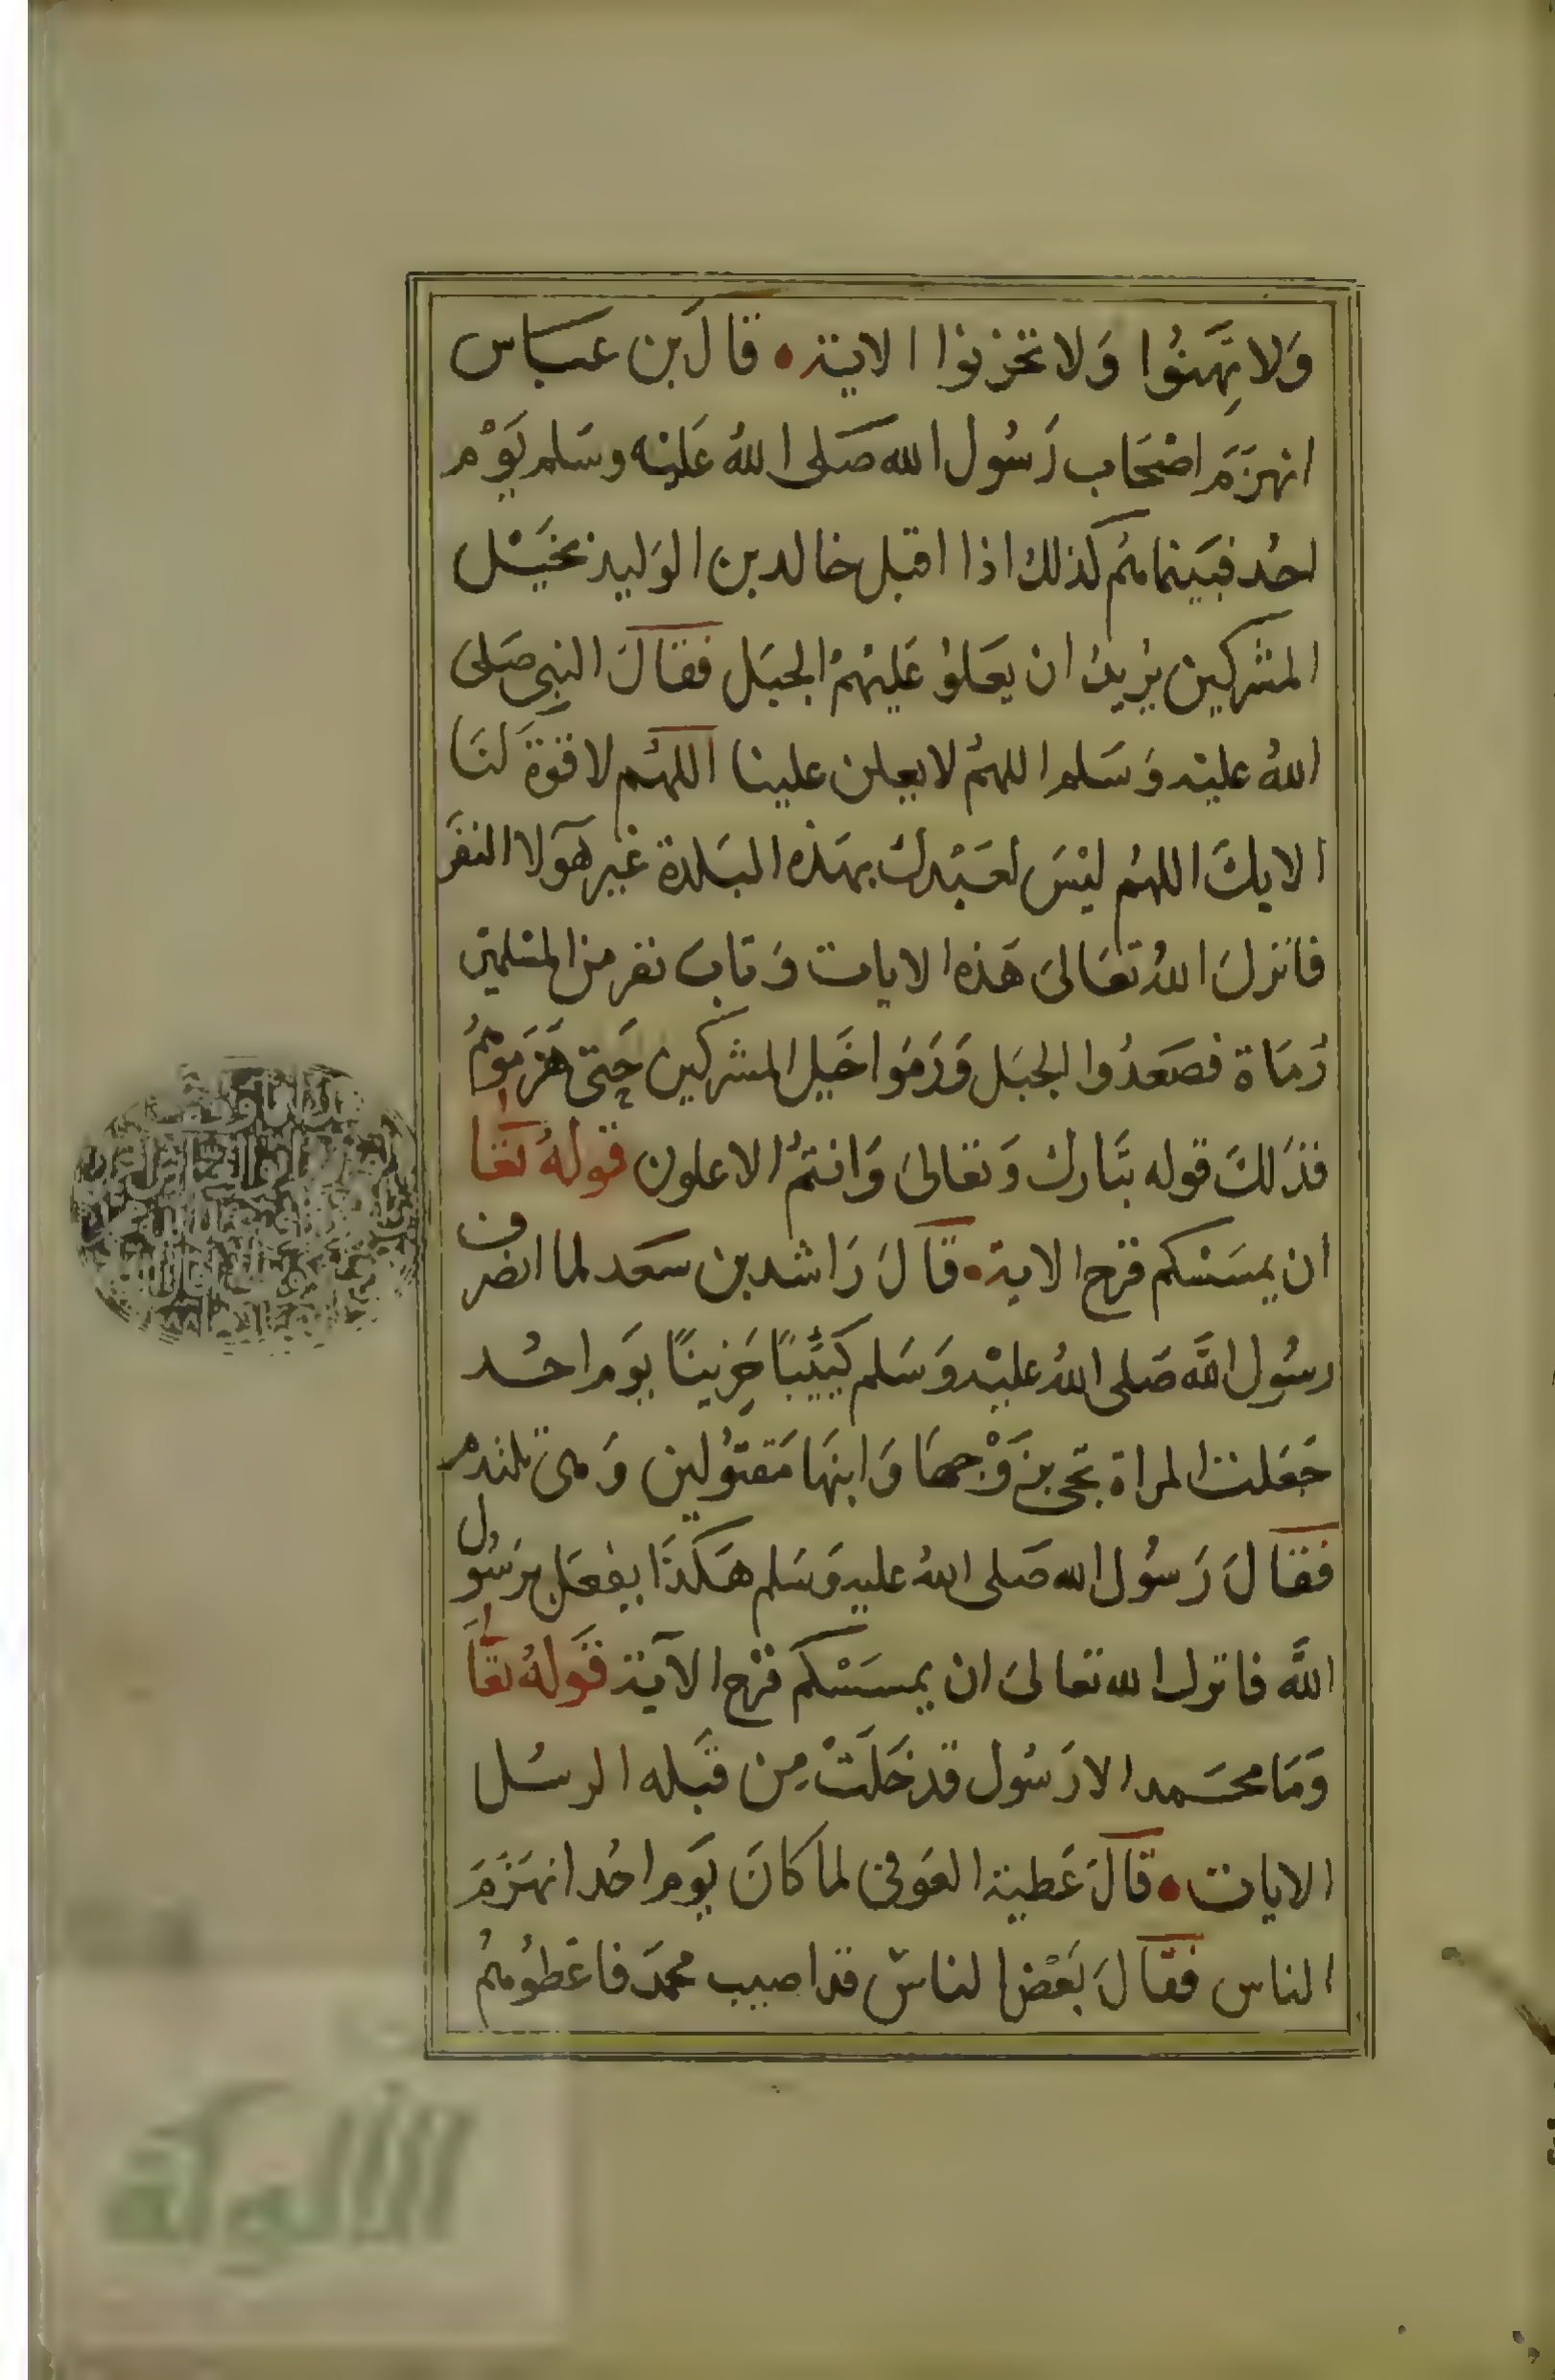 وَلا تَهِنُوا وَلا تحزنوا الاية • قالَ بن عباس
انهزَمَ اصْحَاب رَسُول الله صَلى اللهُ عَليْه وسَلم يَوْم
احُد فبَينما هُم كذلك اذا اقبل خالد بن الوَليد بخَيْل
المشركين يرُيدُ ان يعَلوُ عَليْهمُ الجبَل فقالَ النبي صَلى
اللهُ عليْه وَسَلم اللهمُ لا يعلن علينا اللهُم لا قوَّةَ لنَا
الا بكَ اللهُم ليْسَ لعَبْدكَ بهَذه البَلدة غير هَولا النفَر
فانزلَ اللهُ تعَالىَ هَذه الايات وَتابَ نفر من المسْلمين
رُمَاة فصَعدُوا الجبَل وَرَمَوا خَيل المشركين حَتى هَزمَوهُمُ
فذَلكَ قوله تبَارك وَتعالىَ وَانتمُ الاعلون قولهُ تعَا
ان يمسَسْكم قرح الاية • قالَ رَاشد بن سَعد لما انصرف
رسُول اللَّه صَلى اللهُ عليْه وَسَلم كَئيبًا حَزينًا يوَم احُد
جَعَلت المراة تجى بزَوْجهَا وَابنهَا مَقتوُلين وَهى تلتدم
فقالَ رَسوُل الله صَلى اللهُ عليه وَسَلم هَكذَا يفعَل برَسُول
اللَّه فانزل الله تعالىَ ان يمسَسْكم قرْح الآيَة قَولهُ تعَاَ
وَمَا محَمد الا رَسُول قد خَلَتْ مِن قبَله الرسُل
الايات • قالَ عَطية العَوفى لما كانَ يوَم احُد انهَزَمَ
الناس فقالَ بَعْض الناسَ قد اصيب محمدَ فاعْطوُهمُ
الألوكة